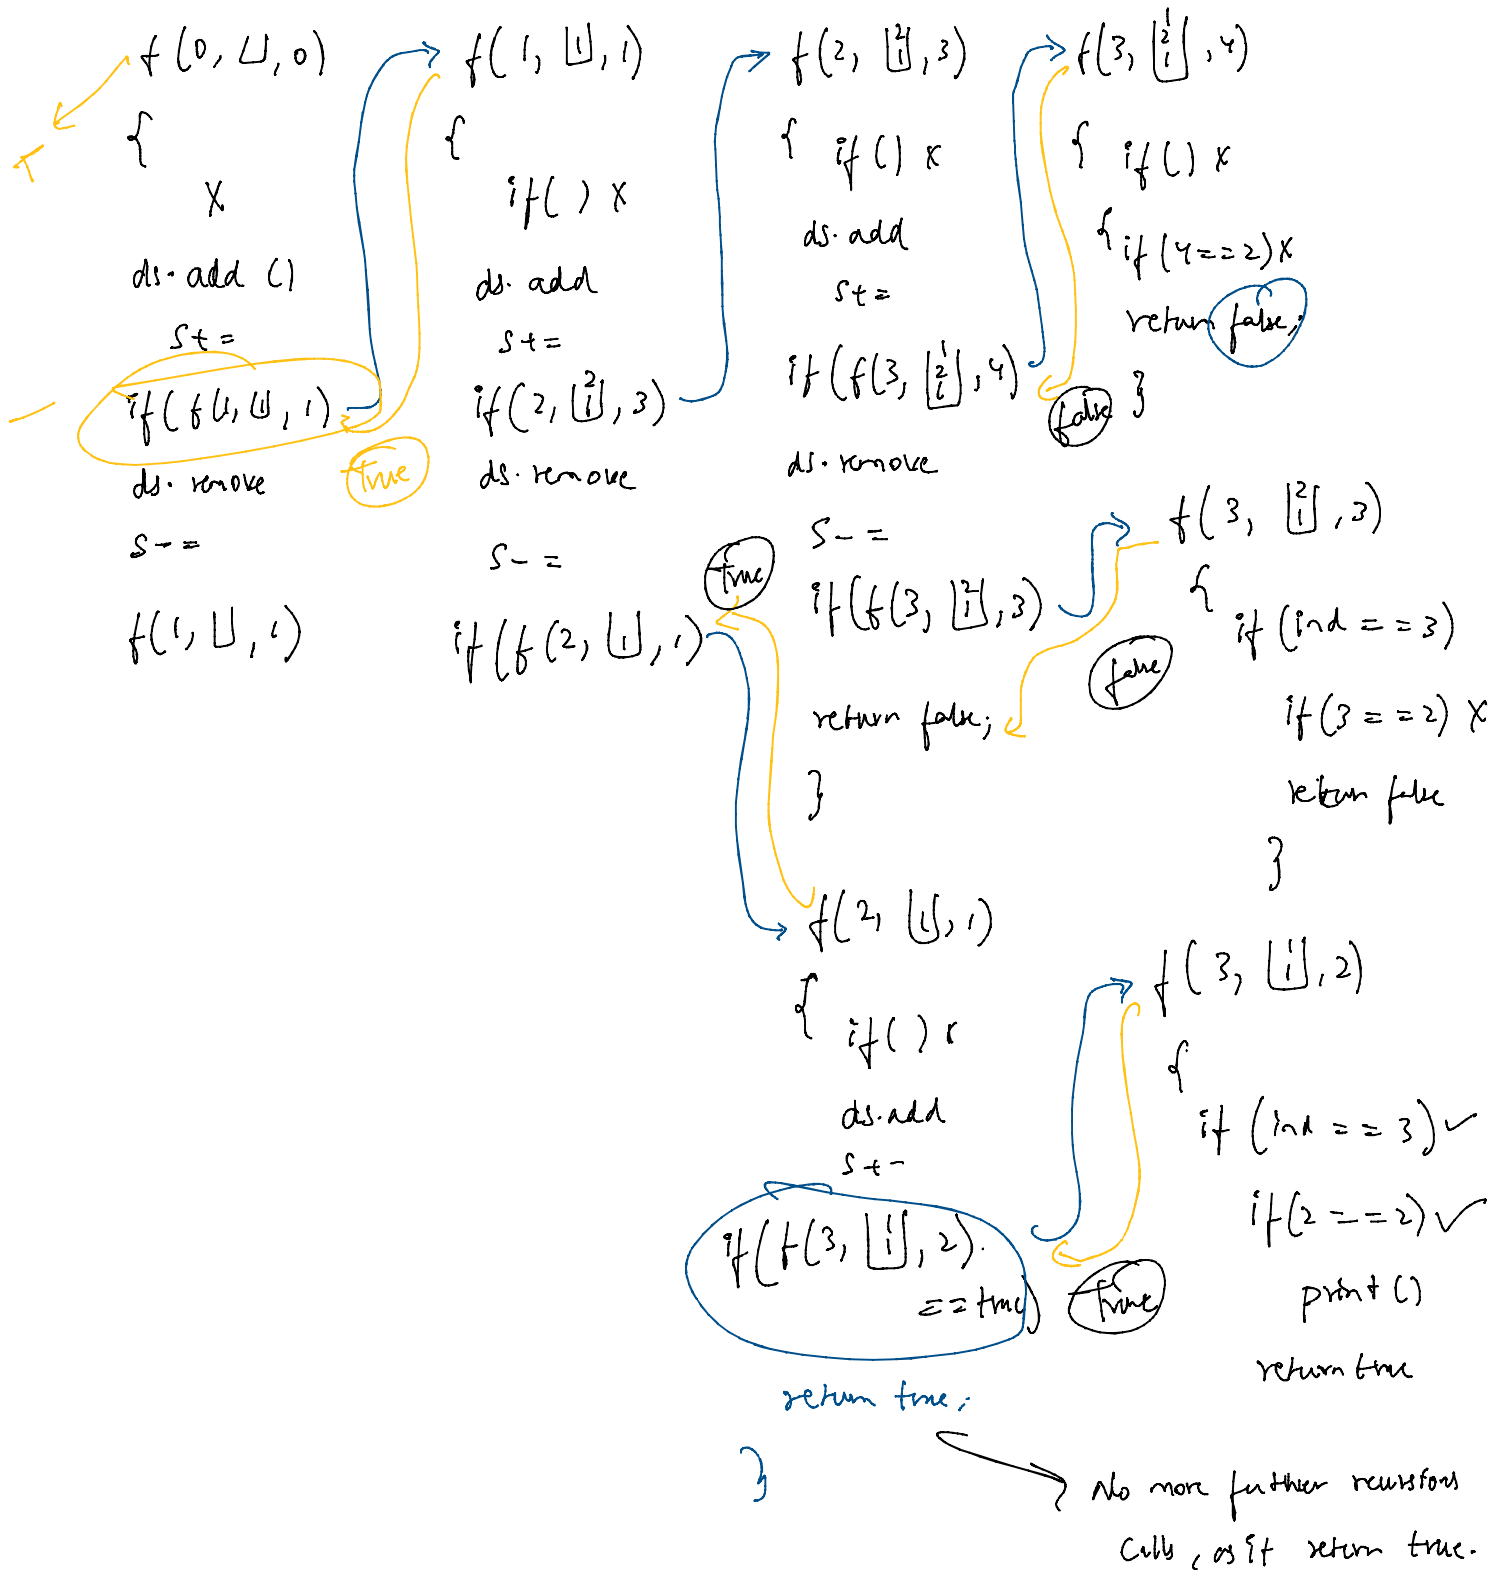 f(0, ⊔, 0)
{
X
ds.add ()
S+=
if(f(1, |1|, 1)
true
ds.remove
S-=
f(1, ⊔, 1)
T
f(1, |1|, 1)
{
if() X
ds.add
S+=
if(2, |2 1|, 3)
ds.remove
S-=
if(f(2, |1|, 1)
true
f(2, |2 1|, 3)
{
if() X
ds.add
S+=
if(f(3, |1 2 1|, 4)
false
ds.remove
S-=
if(f(3, |2 1|, 3)
false
return false;
}
f(3, |1 2 1|, 4)
{
if() X
{ if(4==2) X
return false;
}
f(3, |2 1|, 3)
{
if(ind==3)
if(3==2) X
return false
}
f(2, |1|, 1)
{
if() X
ds.add
S+-
if(f(3, |1 1|, 2).
==true)
true
return true;
}
f(3, |1 1|, 2)
{
if(ind==3) ✓
if(2==2) ✓
print()
return true
No more further recursions
calls, as it return true.